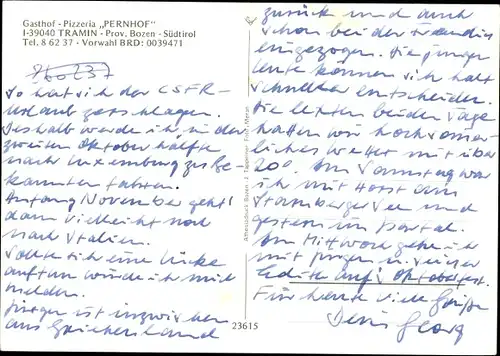 Gasthof - Pizzeria „PERNHOF"
I-39040 TRAMIN - Prov. Bozen - Südtirol
Tel. 8 62 37 - Vorwahl BRD: 0039471
So hat sich der CSFR-
Urlaub zerschlagen.
Deshalb werde ich in der
zweiten Oktober hälfte
nach Luxemburg zu Be-
kannten fahren.
Anfang November geht's
dann vielleicht noch
nach Italien.
Sollte sich eine Lücke
auftun würde ich mich
melden.
Jürgen ist inzwischen
aus Griechenland
zurück und auch
schon bei der
eingezogen. Die jungen
Leute können sich halt
schneller entscheiden.
Die letzten beiden Tage
hatten wir hochsommer
liches Wetter mit über
20°. Am Samstag war
ich mit Horst am
Starnberger See und
gestern im Isartal.
Am Mittwoch gehe ich
mit Jürgen u. seiner
auf's Oktoberfest.
Für heute viele Grüße
Dein Georg
Athesiadruck Bozen
23615